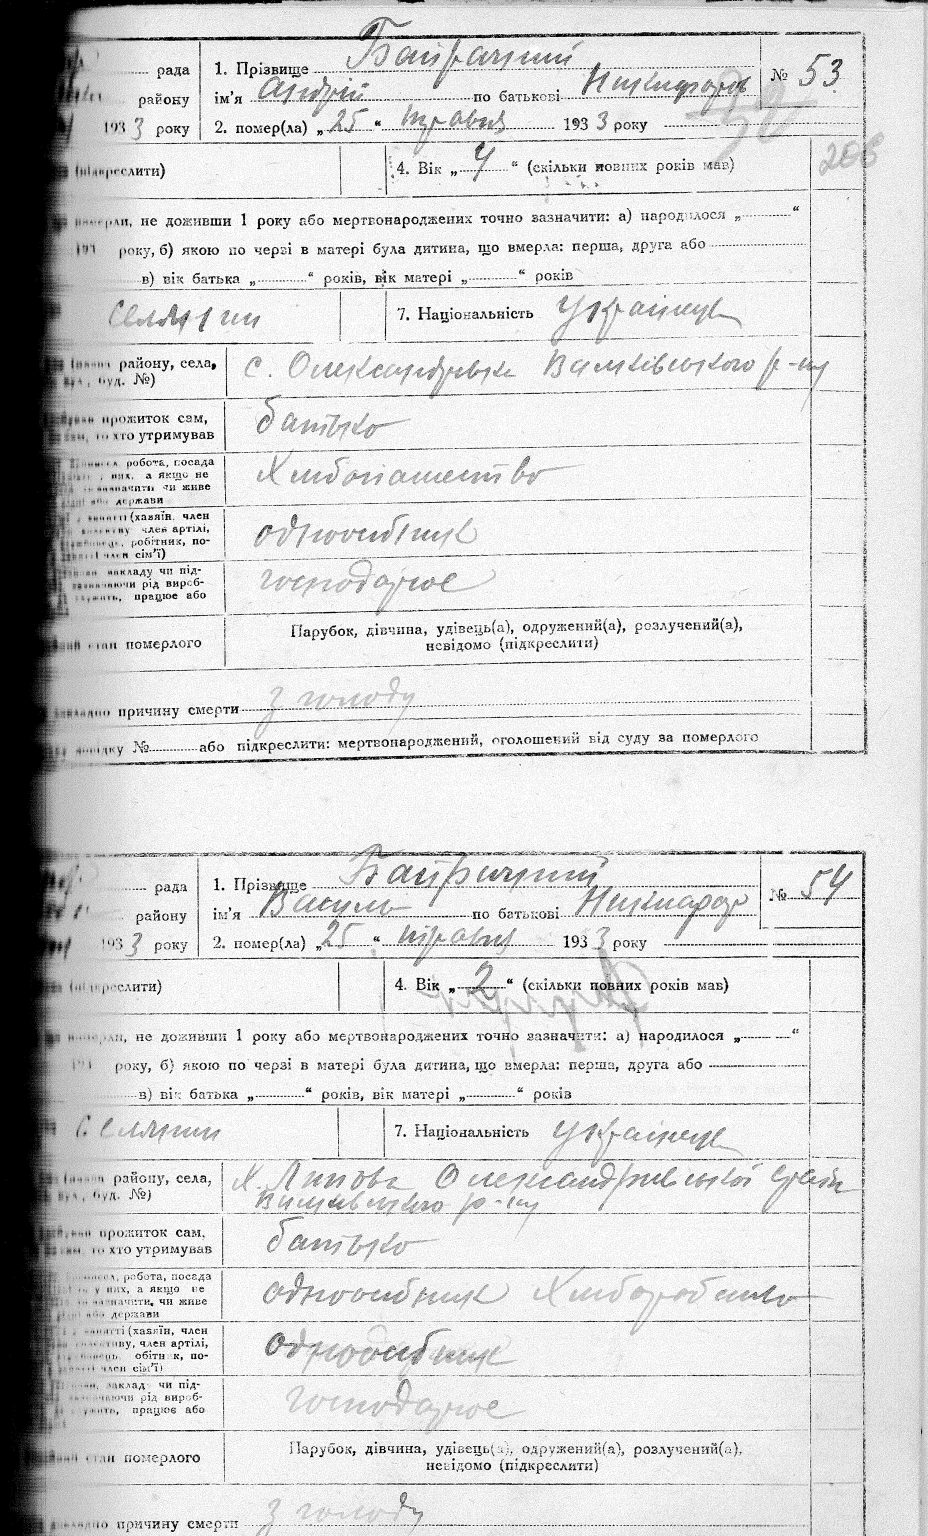 рада
1. Прізвище Байрачний
№ 53
району
ім'я Андрій по батькові Никифоров
1933 року
2. помер(ла) „25“ травня 1933 року
206
(підкреслити)
4. Вік „4“ (скільки повних років мав)
вмерли, не доживши 1 року або мертвонароджених точно зазначити: а) народилося „ “
193 року, б) якою по черзі в матері була дитина, що вмерла: перша, друга або
в) вік батька „ “ років, вік матері „ “ років
Селянин
7. Національність Українець
району, села,
буд. №)
с. Олександрівка Валківського р-ну
прожиток сам,
то хто утримував
батько
робота, посада
них, а якщо не
чи живе
держави
Хліборобство
(хазяїн, член
член артілі,
робітник, по-
член сім'ї)
одноосібник
закладу чи під-
рід вироб-
працює або
господарює
стан померлого
Парубок, дівчина, удівець(а), одружений(а), розлучений(а),
невідомо (підкреслити)
причину смерти з голоду
№ або підкреслити: мертвонароджений, оголошений від суду за померлого
рада
1. Прізвище Байрачний
№ 54
району
ім'я Василь по батькові Никифор
1933 року
2. помер(ла) „25“ травня 1933 року
(підкреслити)
4. Вік „2“ (скільки повних років мав)
вмерли, не доживши 1 року або мертвонароджених точно зазначити: а) народилося „ “
193 року, б) якою по черзі в матері була дитина, що вмерла: перша, друга або
в) вік батька „ “ років, вік матері „ “ років
Селянин
7. Національність Українець
району, села,
буд. №)
х. Липове Олександрівської с/ради
Валківського р-ну
прожиток сам,
то хто утримував
батько
робота, посада
у них, а якщо не
зазначити, чи живе
держави
одноосібник Хліборобство
(хазяїн, член
член артілі,
по-
член сім'ї)
одноосібник
заклад чи під-
рід вироб-
працює або
господарює
стан померлого
Парубок, дівчина, удівець(а), одружений(а), розлучений(а),
невідомо (підкреслити)
причину смерти з голоду